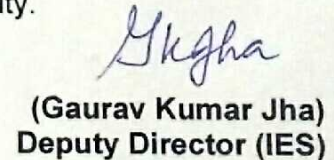 ity.
Gkjha
(Gaurav Kumar Jha)
Deputy Director (IES)